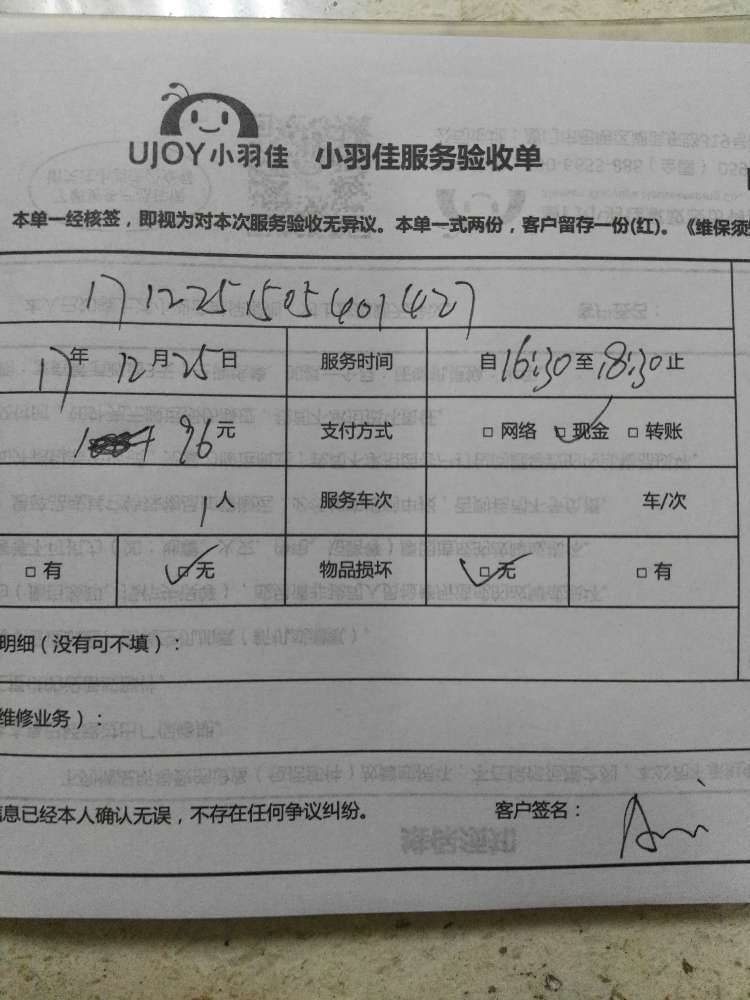 UJOY小羽佳 小羽佳服务验收单
本单一经核签，即视为对本次服务验收无异议。本单一式两份，客户留存一份(红)。《维保须
1712251505401427
17年12月25日 服务时间 自16:30至18:30止
96元 支付方式 □网络 □现金 □转账
1人 服务车次 车/次
□有 □无 物品损坏 □无 □有
明细（没有可不填）：
维修业务）：
息已经本人确认无误，不存在任何争议纠纷。 客户签名：